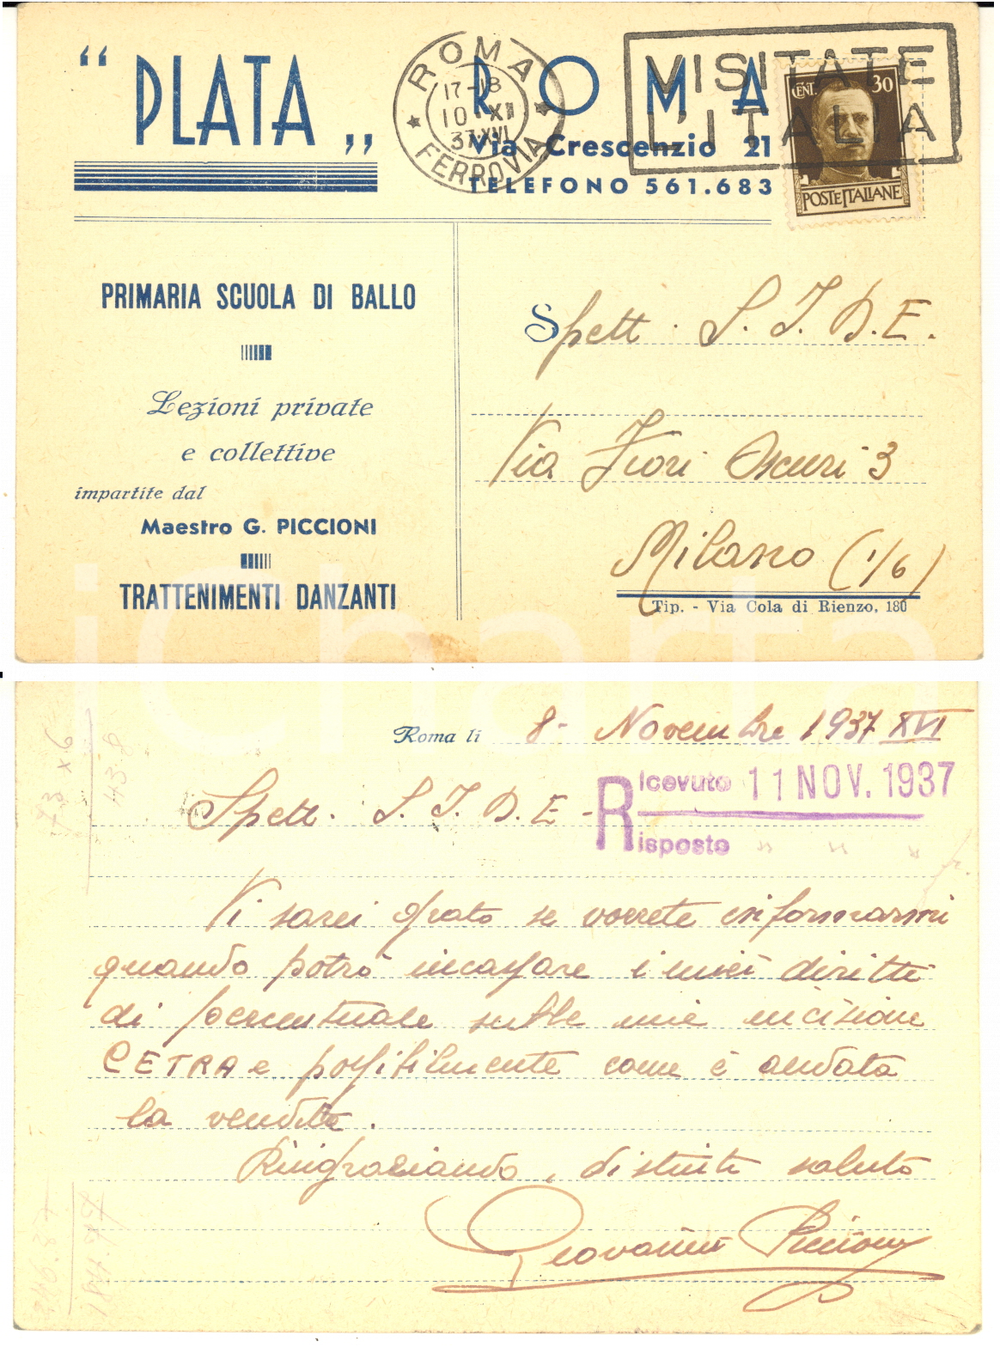 “ PLATA „
ROMA
Via Crescenzio 21
TELEFONO 561.683
ROMA
17-18
10 XI
37 XVI
FERROVIA
VISITATE
L'ITALIA
CENT. 30
POSTE ITALIANE
PRIMARIA SCUOLA DI BALLO
Lezioni private
e collettive
impartite dal
Maestro G. PICCIONI
TRATTENIMENTI DANZANTI
Spett. S. I. D. E.
Via Fiori Oscuri 3
Milano (1/6)
Tip. - Via Cola di Rienzo, 180
iCharta
Roma li 8- Novembre 1937 XVI
Spett. S. I. D. E -
Ricevuto 11 NOV. 1937
Risposto " " "
Vi sarei grato se vorrete informarmi
quando potrò incassare i miei diritti
di percentuale sulle mie incisione
CETRA e possibilmente come è andata
la vendita.
Ringraziando, distinti saluto
Giovanni Piccioni
73 x 6
43.8